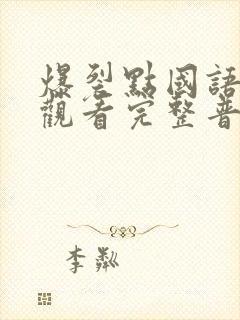 爆裂點國語
觀看完整普
李粼